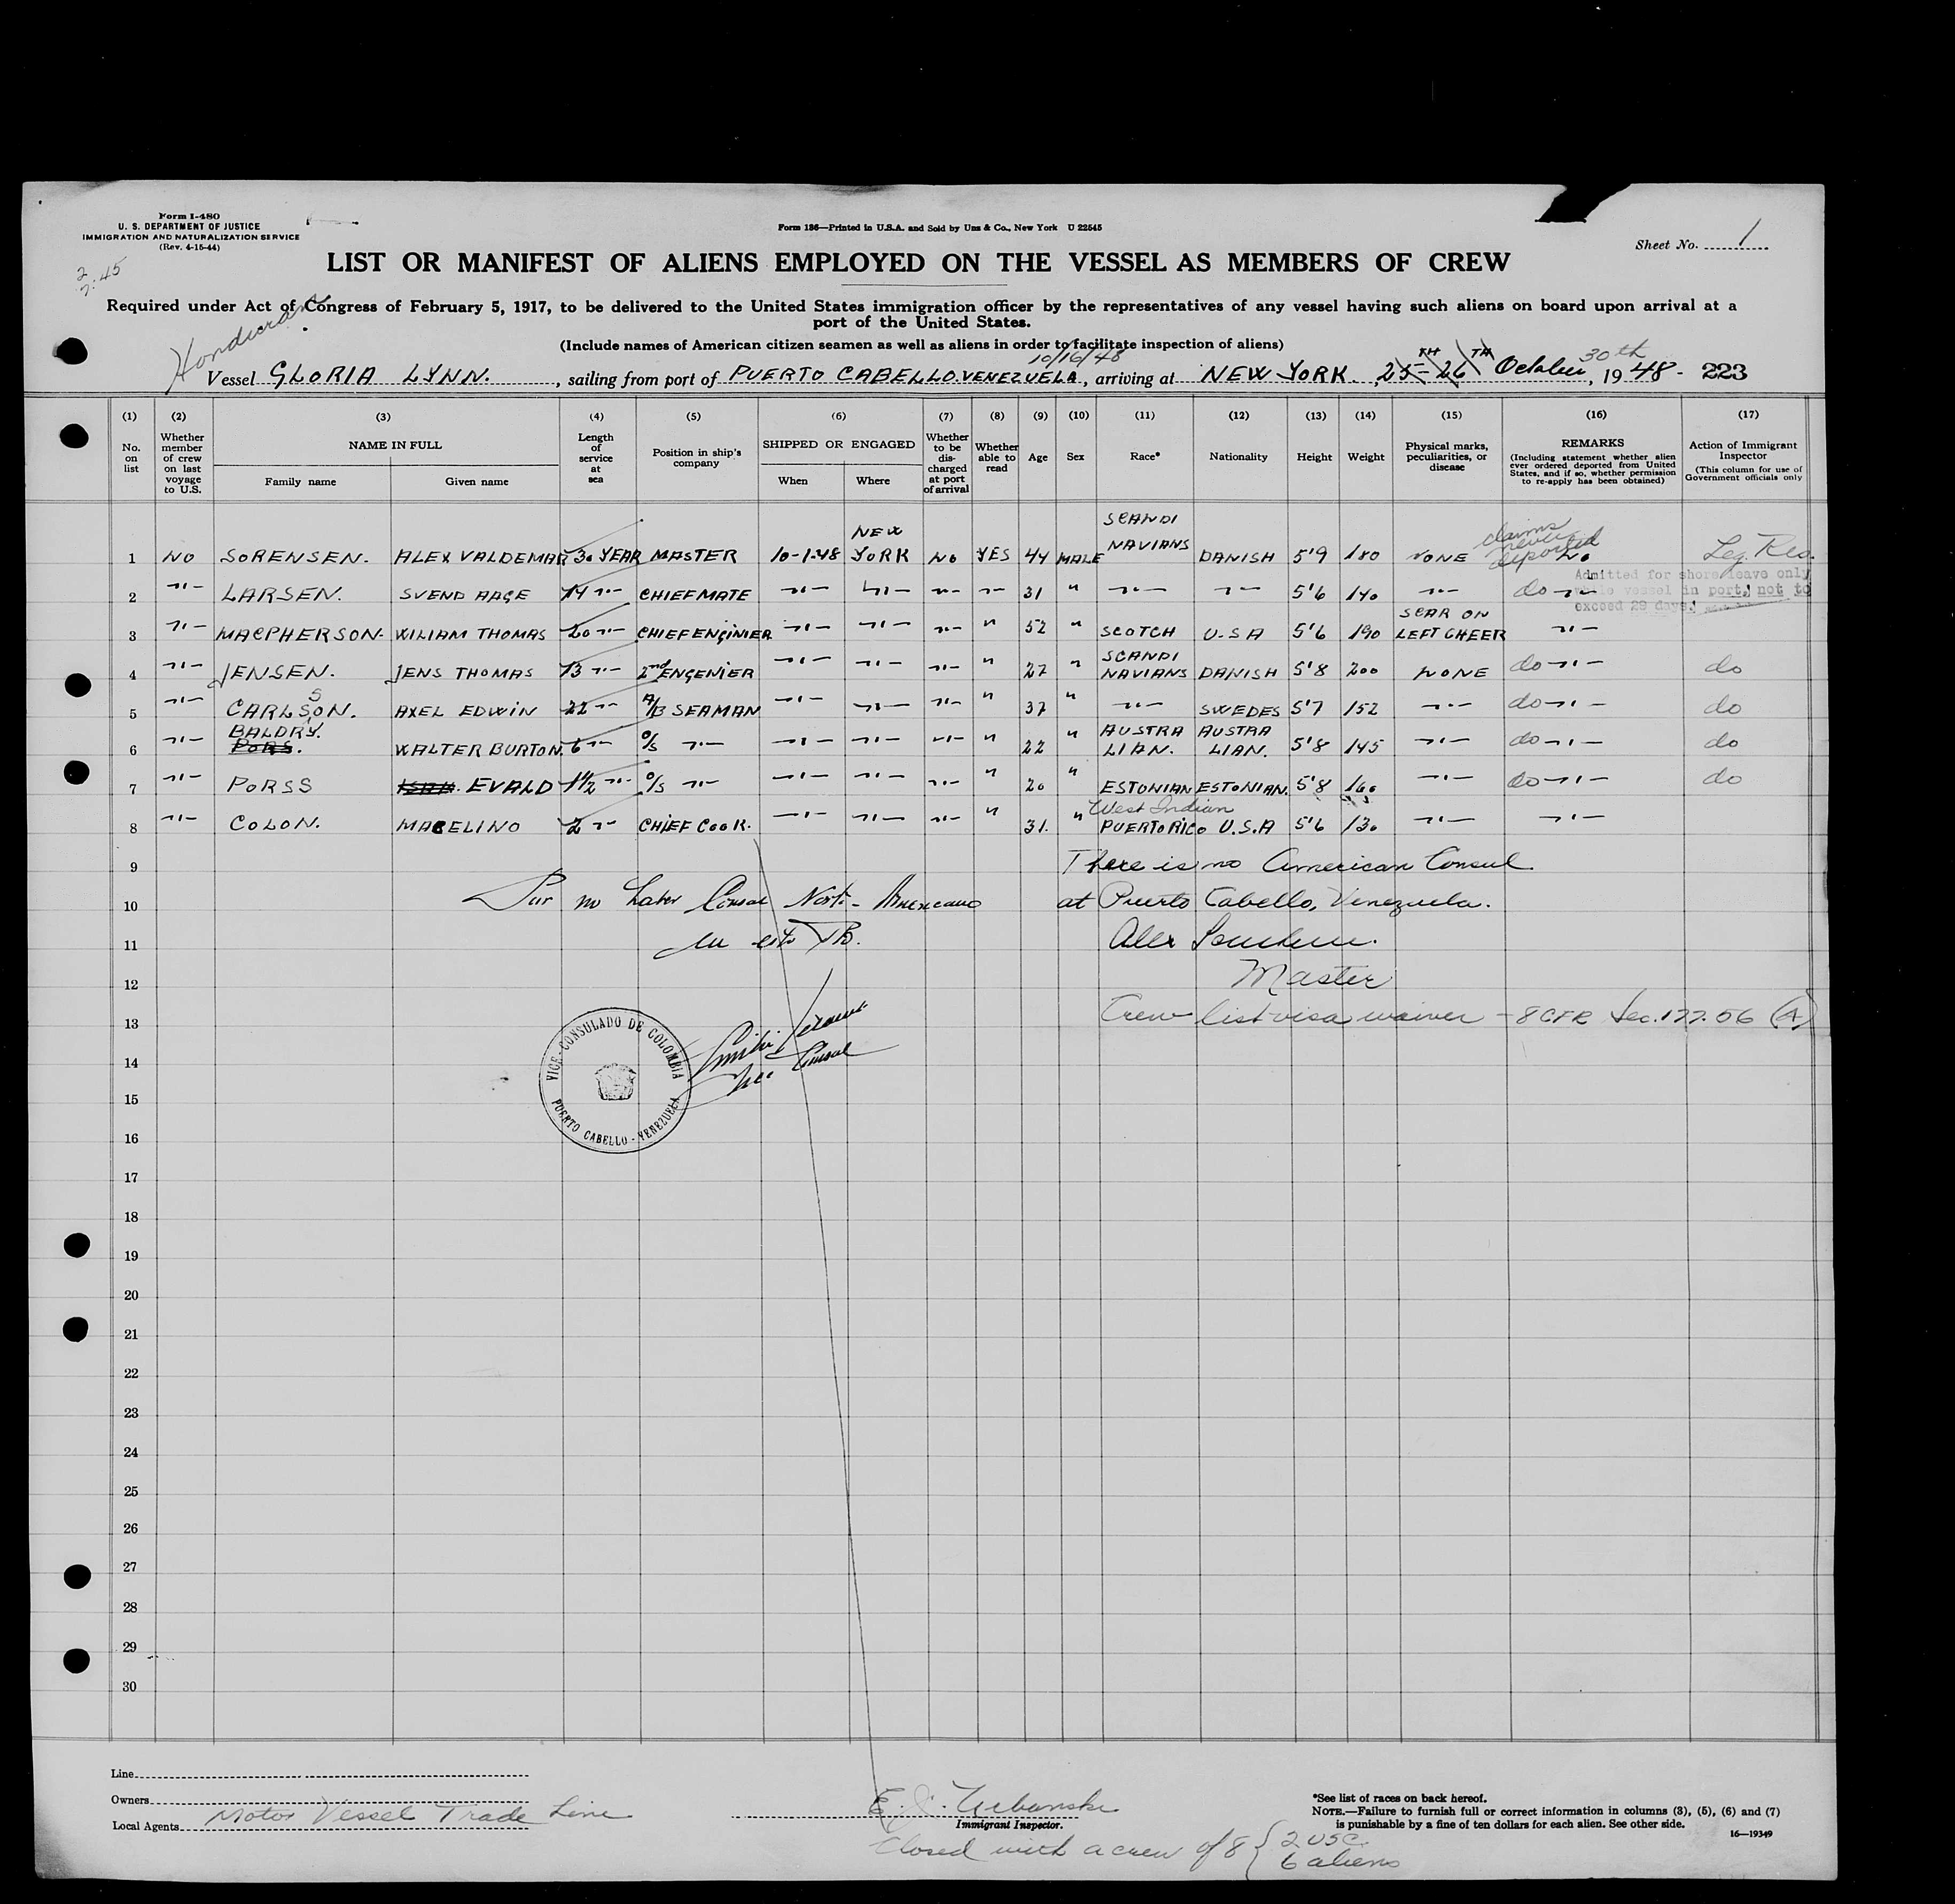 Form I-480
U. S. DEPARTMENT OF JUSTICE
IMMIGRATION AND NATURALIZATION SERVICE
(Rev. 4-15-44)
Form 186—Printed in U.S.A. and Sold by Unz & Co., New York U 22545
Sheet No. 1
2
7:45
LIST OR MANIFEST OF ALIENS EMPLOYED ON THE VESSEL AS MEMBERS OF CREW
Required under Act of Congress of February 5, 1917, to be delivered to the United States immigration officer by the representatives of any vessel having such aliens on board upon arrival at a
port of the United States.
(Include names of American citizen seamen as well as aliens in order to facilitate inspection of aliens)
Honduran
10/16/48
30th
Vessel GLORIA LYNN. , sailing from port of PUERTO CABELLO. VENEZUELA , arriving at NEW YORK. , 25TH - 26TH October , 1948 - 223
(1) (2) (3) (4) (5) (6) (7) (8) (9) (10) (11) (12) (13) (14) (15) (16) (17)
No. on list
Whether member of crew on last voyage to U.S.
NAME IN FULL
Family name
Given name
Length of service at sea
Position in ship's company
SHIPPED OR ENGAGED
When
Where
Whether to be discharged at port of arrival
Whether able to read
Age
Sex
Race*
Nationality
Height
Weight
Physical marks, peculiarities, or disease
REMARKS
(Including statement whether alien ever ordered deported from United States, and if so, whether permission to re-apply has been obtained)
Action of Immigrant Inspector
(This column for use of Government officials only
1 NO SORENSEN. ALEX VALDEMAR 30 YEAR MASTER 10-1-48 NEW YORK NO YES 44 MALE SCANDI NAVIANS DANISH 5'9 180 NONE claims never deported NO Leg. Res.
2 -"- LARSEN. SVEND AAGE 14 -"- CHIEF MATE -"- -"- -"- -"- 31 " -"- -"- 5'6 140 -"- do -"-
Admitted for shore leave only
while vessel in port, not to
exceed 29 days.
3 -"- MACPHERSON. WILIAM THOMAS 20 -"- CHIEF ENGINIER -"- -"- -"- " 52 " SCOTCH U.S.A 5'6 190 SCAR ON LEFT CHEER -"-
4 -"- JENSEN. JENS THOMAS 13 -"- 2nd ENGENIER -"- -"- -"- " 27 " SCANDI NAVIANS DANISH 5'8 200 NONE do -"- do
5 -"- CARLSSON. AXEL EDWIN 22 -"- A/B SEAMAN -"- -"- -"- " 37 " -"- SWEDES 5'7 152 -"- do -"- do
6 -"- BALDRY. PORS. WALTER BURTON. 6 -"- O/S -"- -"- -"- -"- " 22 " AUSTRA LIAN. AUSTRA LIAN. 5'8 145 -"- do -"- do
7 -"- PORSS EVALD 1 1/2 -"- O/S -"- -"- -"- -"- " 20 " ESTONIAN ESTONIAN. 5'8 160 -"- do -"- do
8 -"- COLON. MACELINO 2 -"- CHIEF COOK. -"- -"- -"- " 31. " West Indian PUERTO RICO U.S.A 5'6 130 -"- -"-
9 There is no American Consul
10 Por no haber Consul Norte-Americano at Puerto Cabello, Venezuela.
11 en esto Alex Sorensen.
12 Master
13 Crew list visa waiver - 8 CFR Sec. 177.06 (A)
14 Vice Consul
VICE-CONSULADO DE COLOMBIA
PUERTO CABELLO - VENEZUELA
15
16
17
18
19
20
21
22
23
24
25
26
27
28
29
30
Line
Owners
Local Agents Motor Vessel Trade Line
E. J. Urbanski
Immigrant Inspector.
Closed with a crew of 8 { 2 USC.
6 aliens
*See list of races on back hereof.
NOTE.—Failure to furnish full or correct information in columns (3), (5), (6) and (7)
is punishable by a fine of ten dollars for each alien. See other side.
16—19349